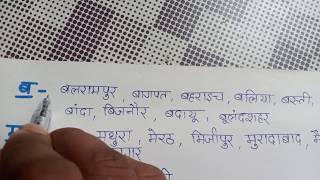 ब - बलरामपुर, बागपत, बहराइच, बलिया, बस्ती,
बांदा, बिजनौर, बदायू, बुलंदशहर
मथुरा, मेरठ, मिर्जापुर, मुरादाबाद,